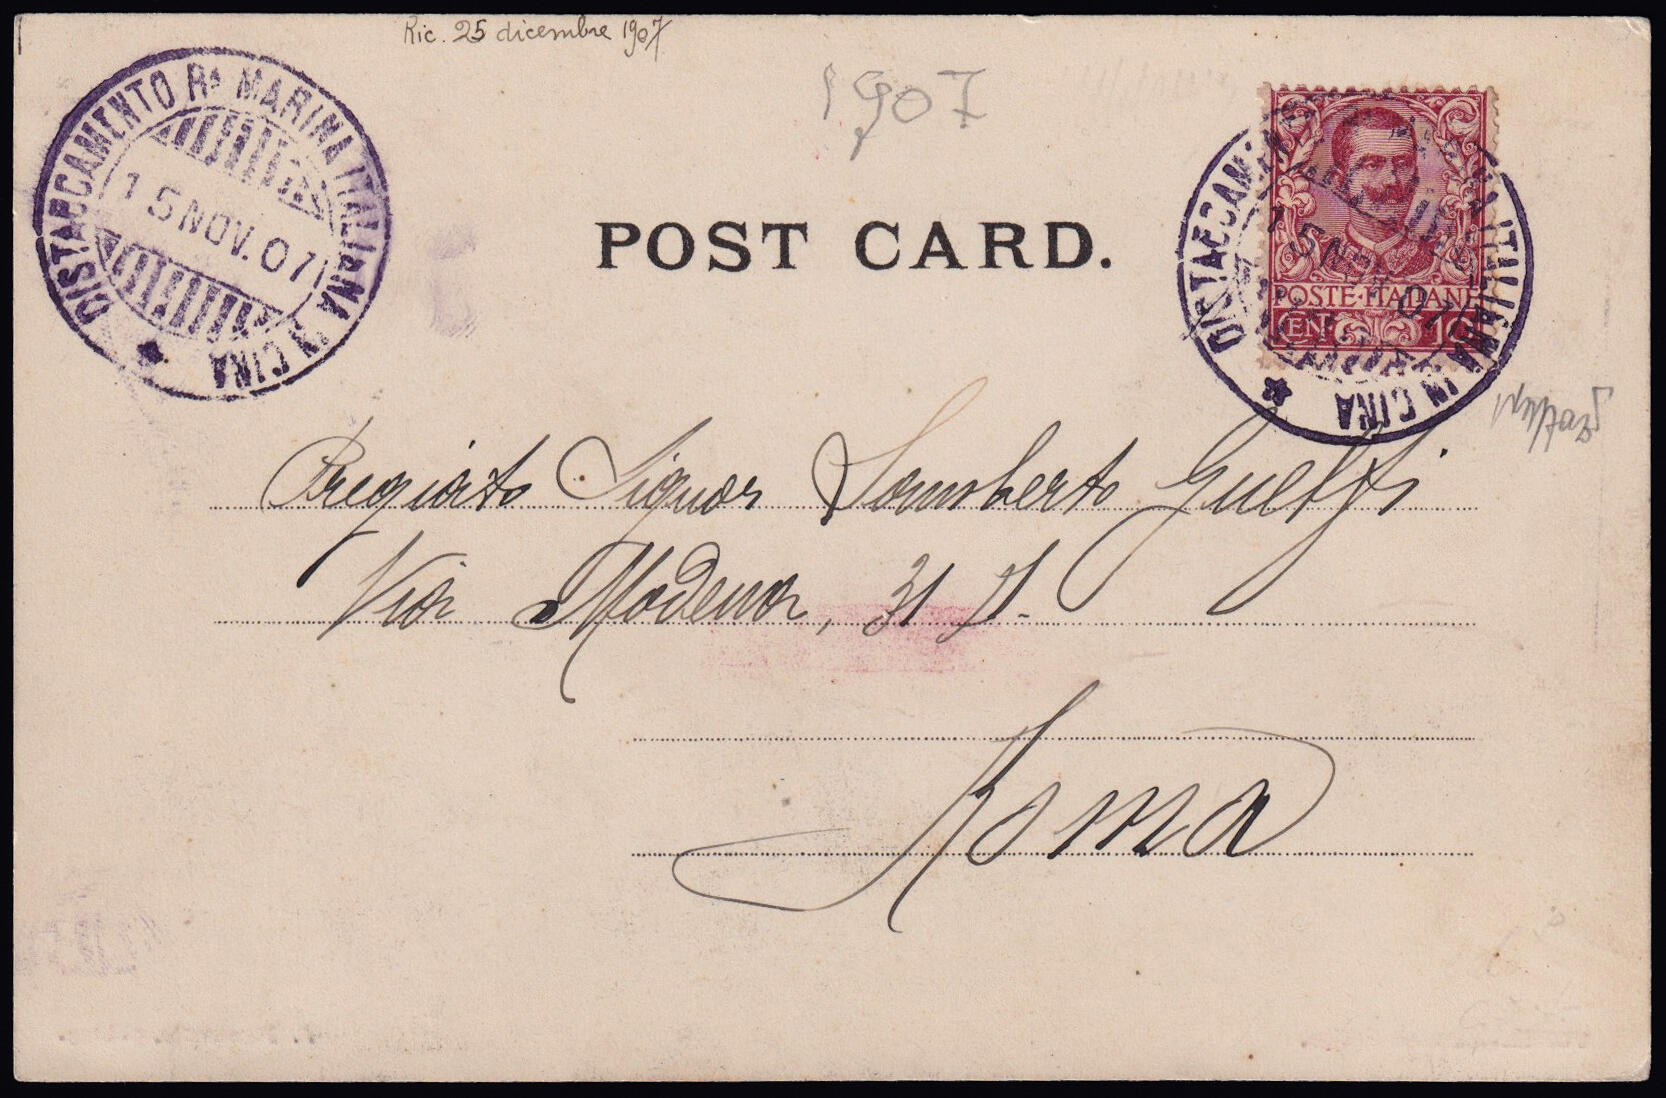 Ric. 25 dicembre 1907
1907
DISTACCAMENTO Rª MARINA ITALIANA IN CINA
15 NOV. 07
POST CARD.
DISTACCAMEN ITALIANA IN CINA
15 NOV. 07
POSTE·ITALIANE
CENT. 10
Pregiato Signor Lamberto Guelfi
Via Modena, 31
Roma